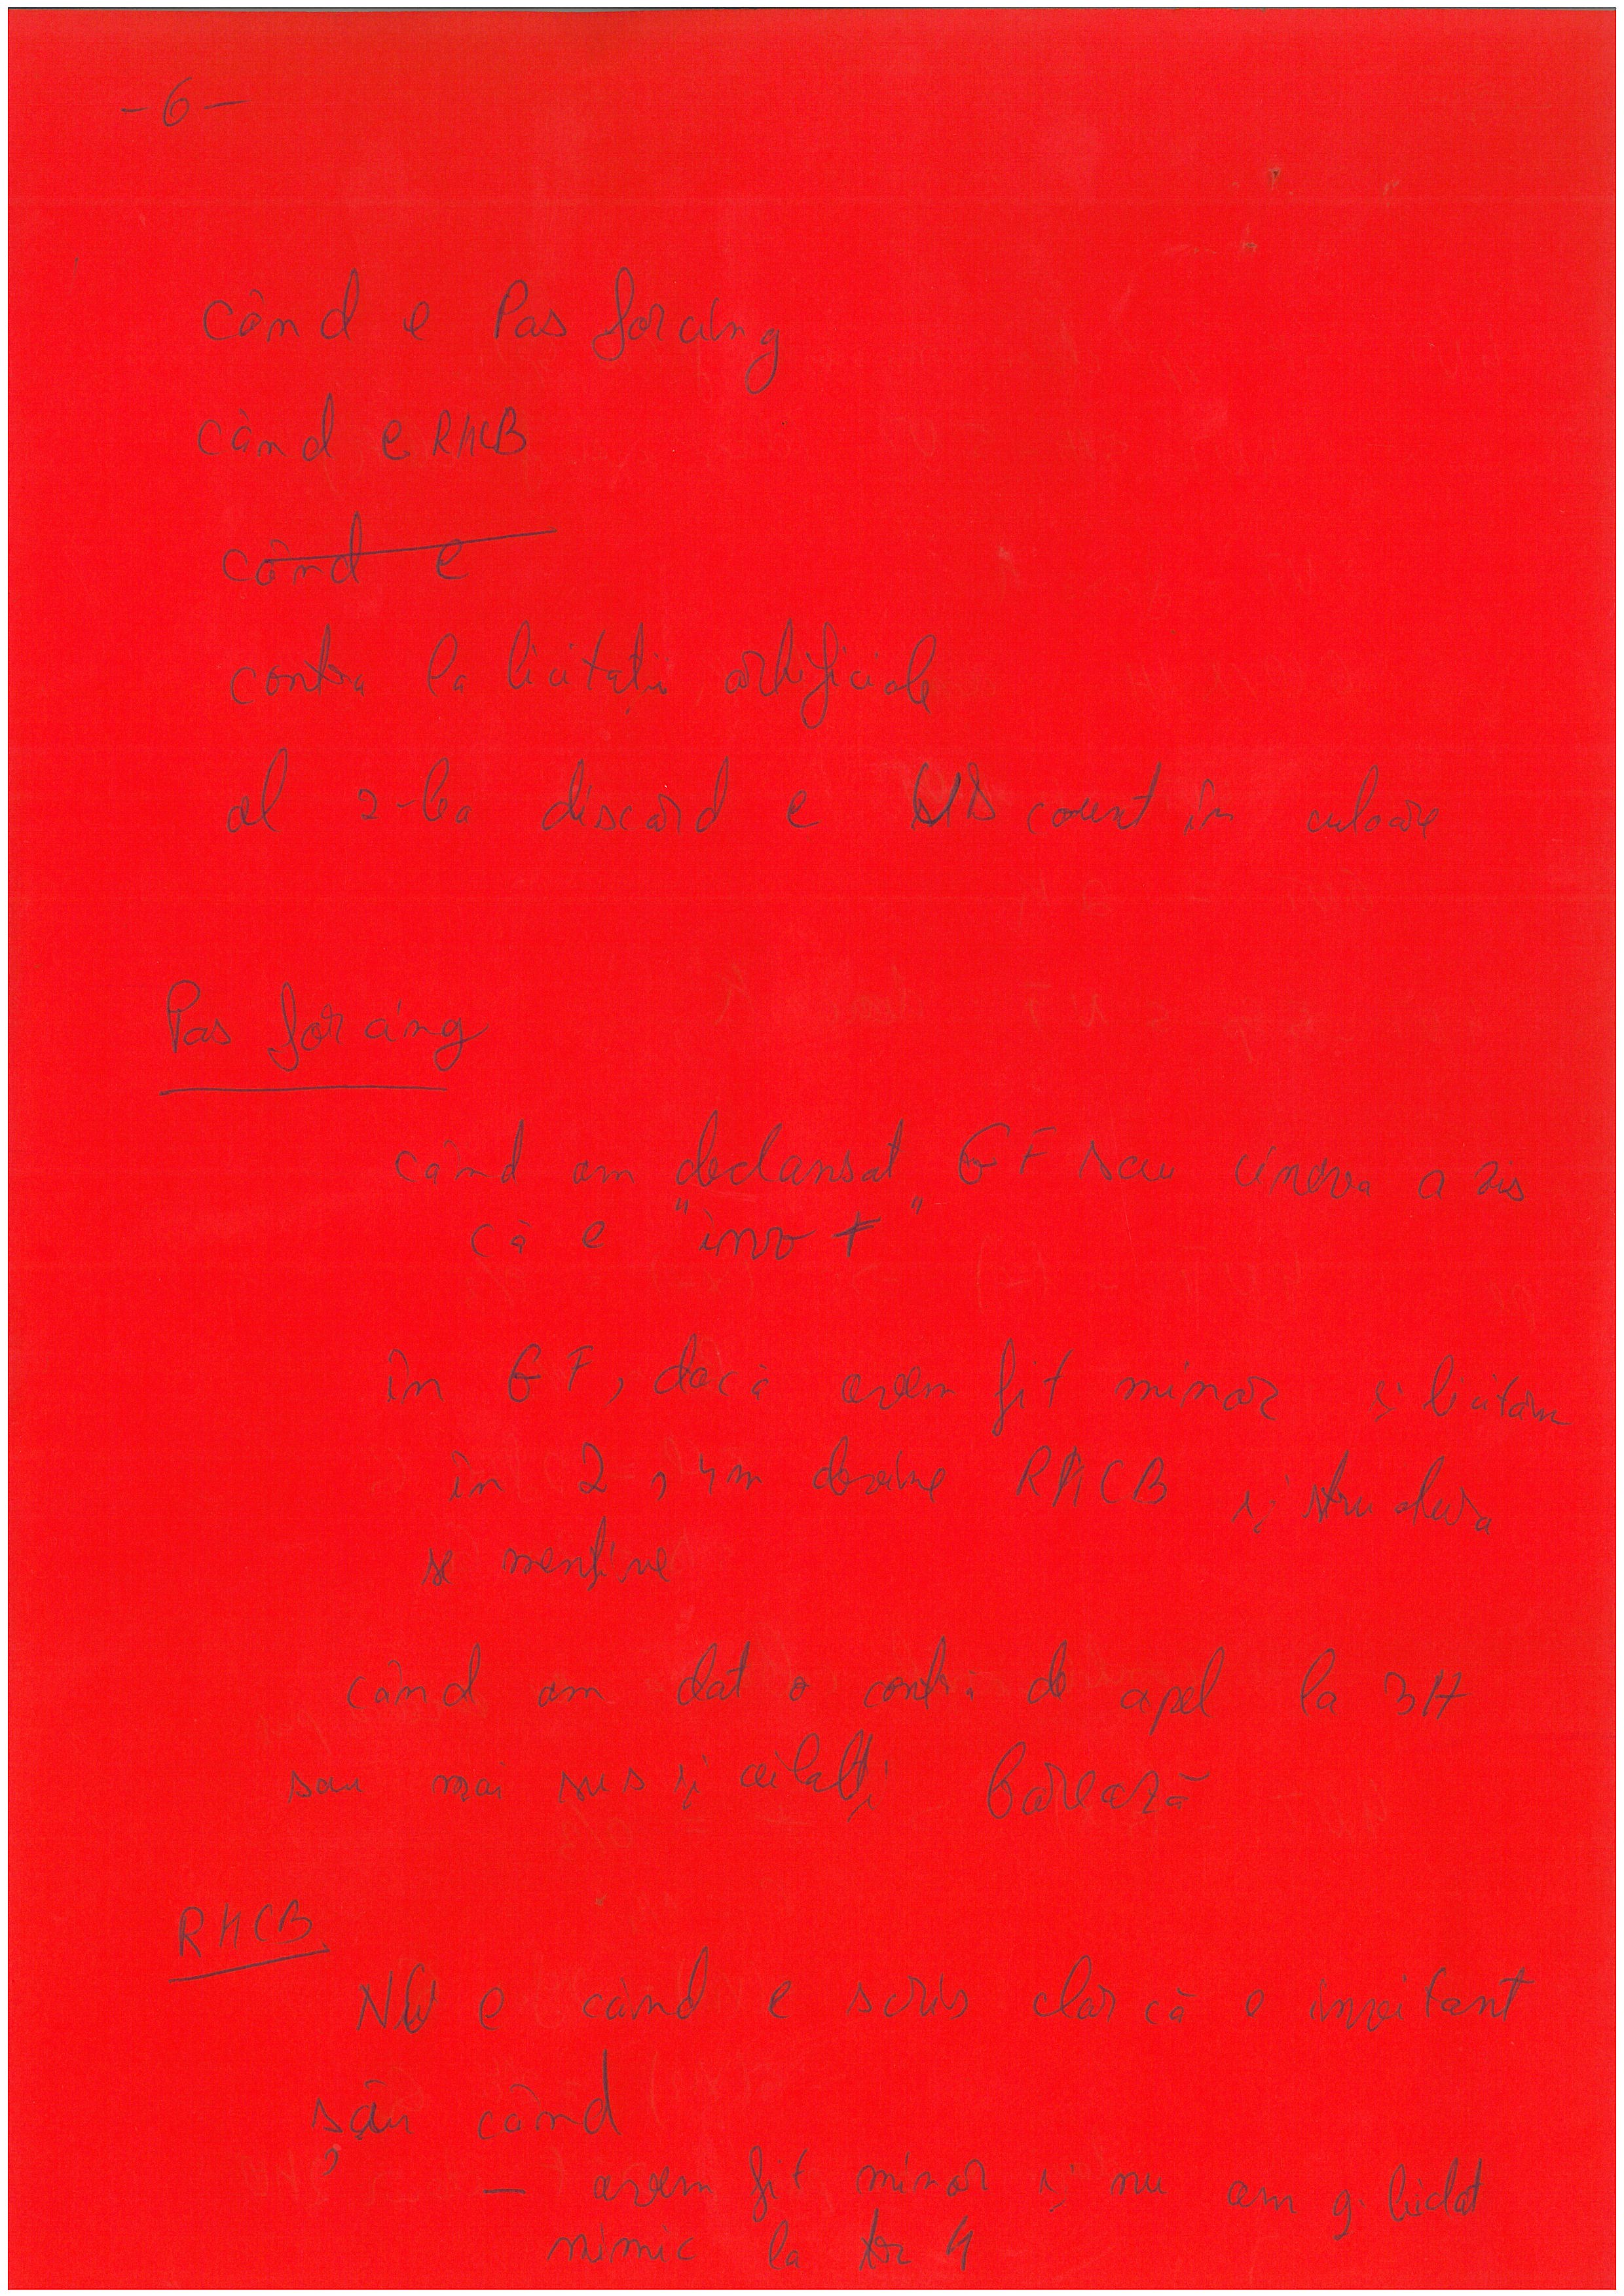 - 6 -
când e Pas forcing
când e RKCB
când e
contra la licitații artificiale
al 2-lea discard e U/D count în culoare
Pas forcing
când am declansat GF sau cineva a zis
că e "inv +"
în GF, dacă avem fit minor și licităm
în 2, 4m devine RKCB și structura
se menține
când am dat o contră de apel la 3H
sau mai sus și ceilalți barează
RKCB
NU e când e scris clar că e invitant
sau când
— avem fit minor și nu am licitat
nimic la tr 4